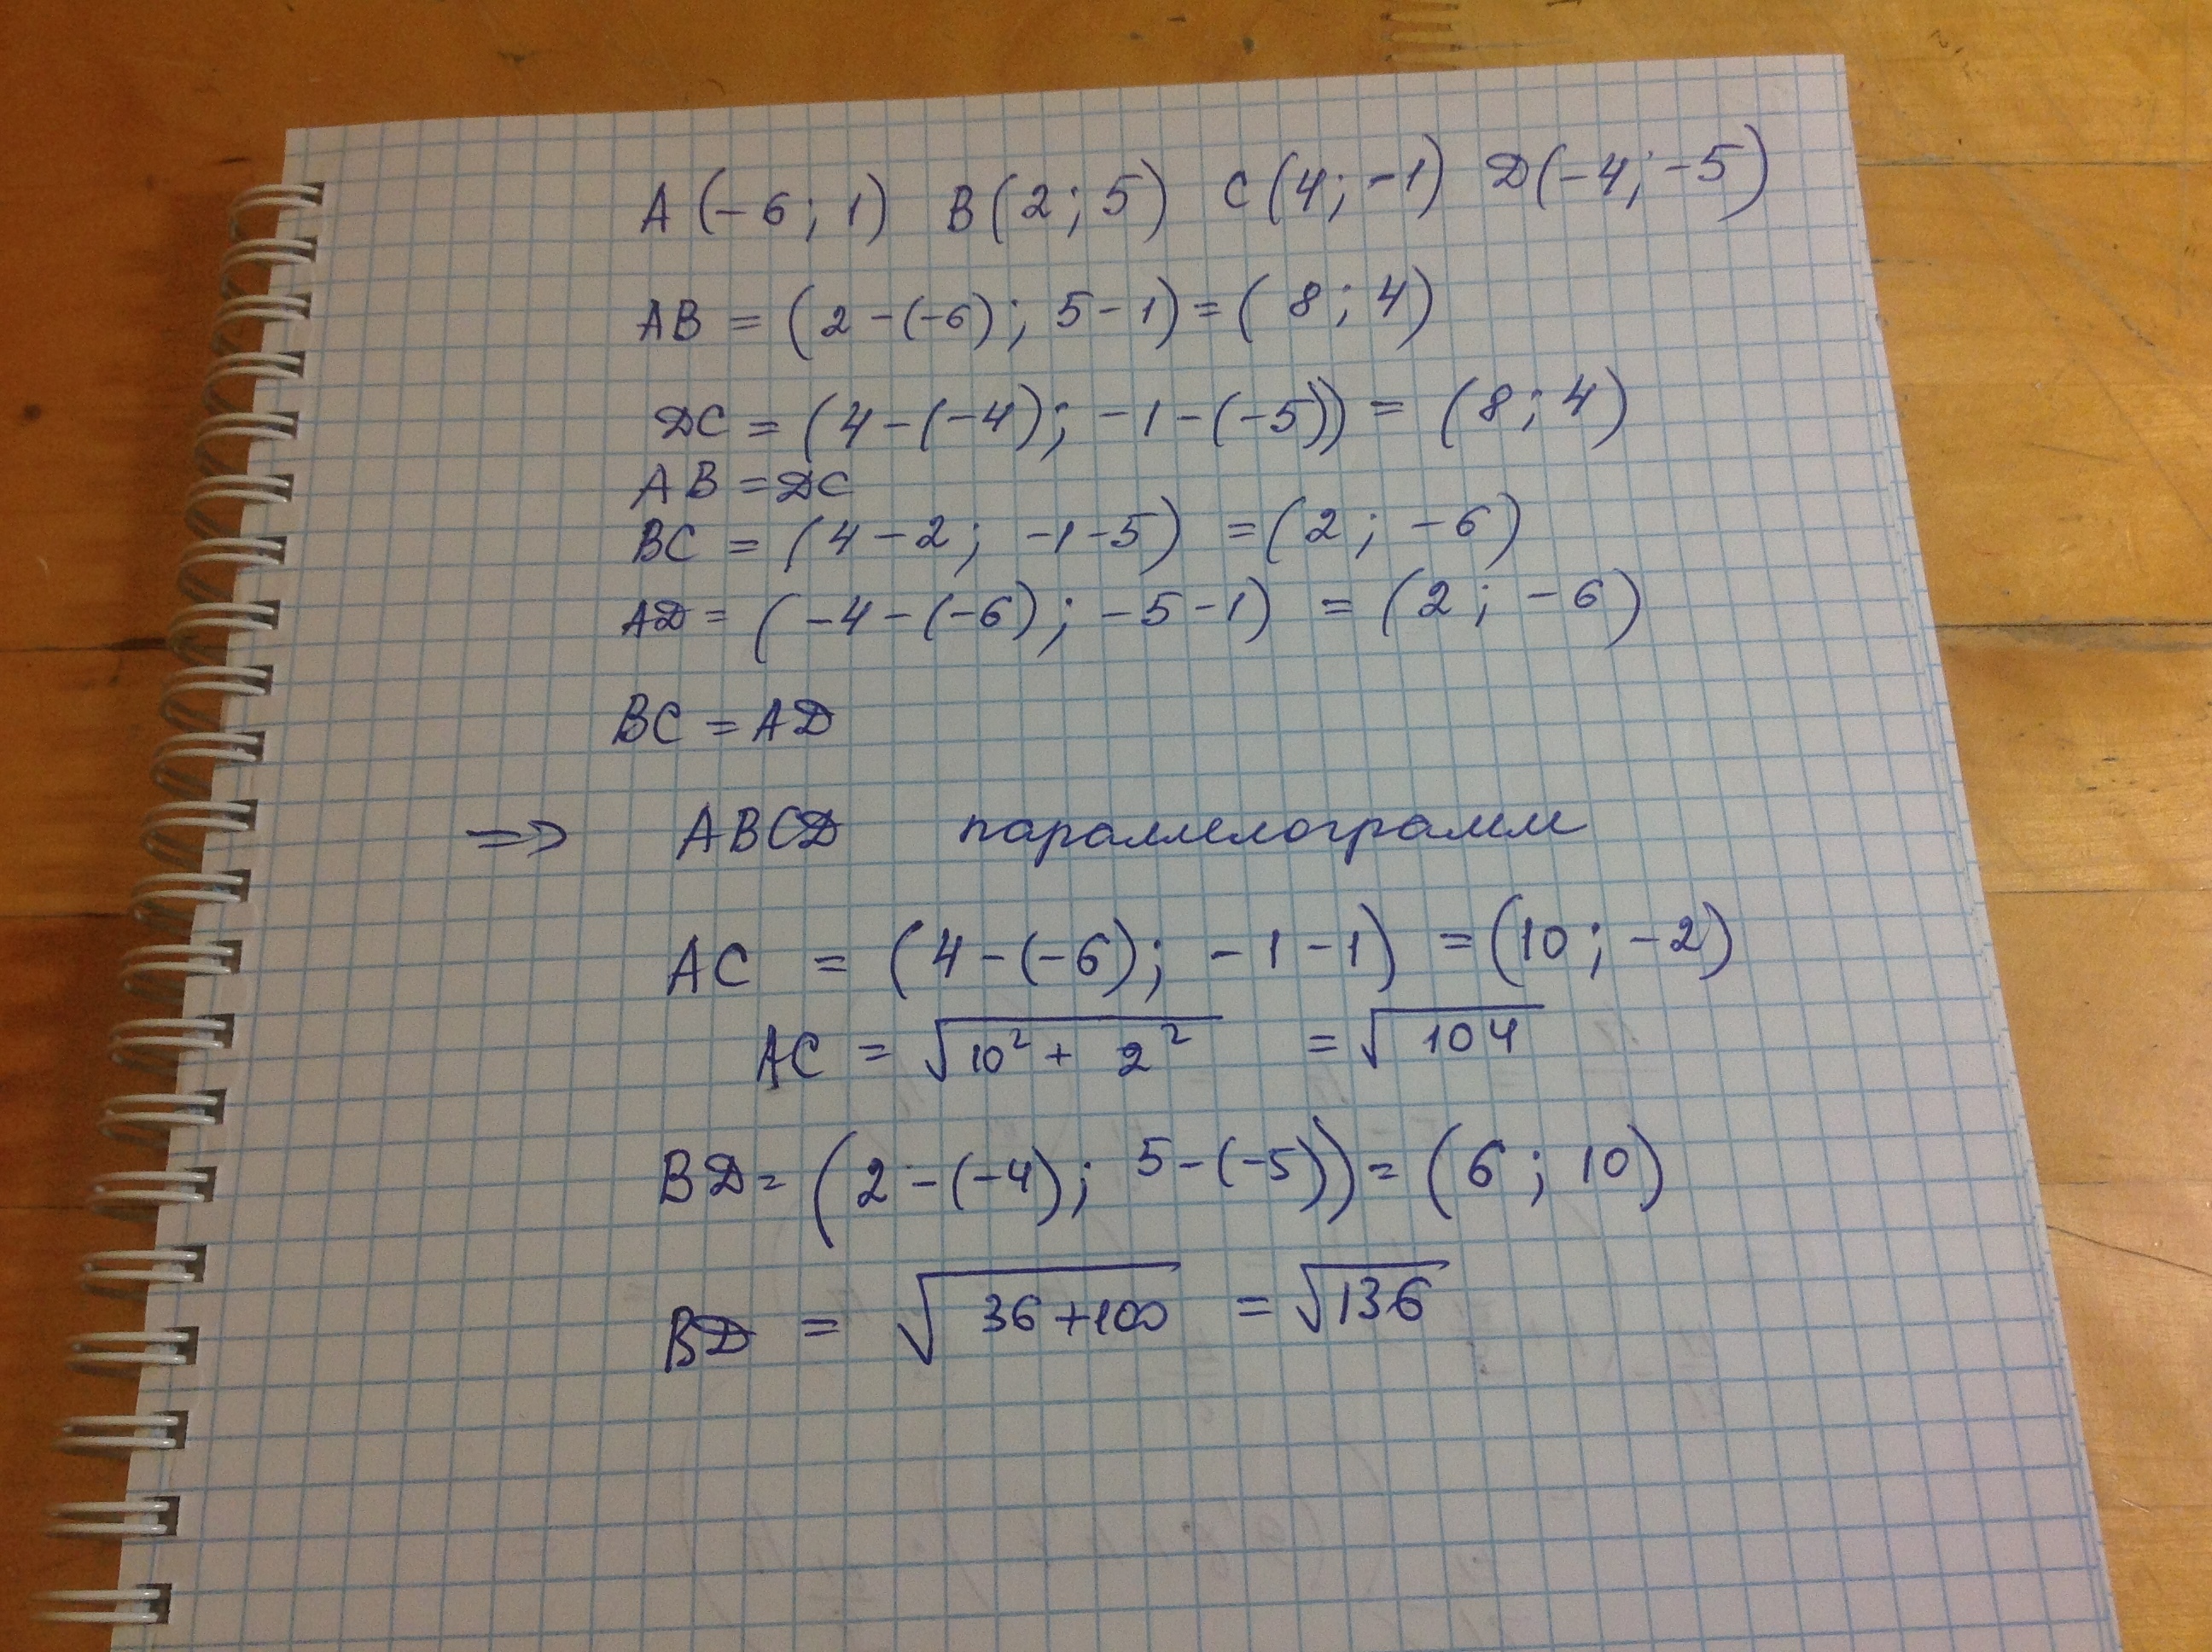 A (-6; 1) B(2; 5) C(4; -1) D(-4; -5)
AB = (2-(-6); 5-1) = (8; 4)
DC = (4-(-4); -1-(-5)) = (8; 4)
AB = DC
BC = (4-2; -1-5) = (2; -6)
AD = (-4-(-6); -5-1) = (2; -6)
BC = AD
=> ABCD параллелограмм
AC = (4-(-6); -1-1) = (10; -2)
AC = √(10² + 2²) = √104
BD = (2-(-4); 5-(-5)) = (6; 10)
BD = √(36+100) = √136